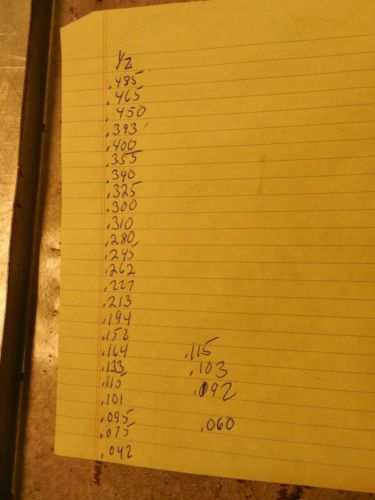 1/2
.485
.465
.450
.393
.400
.355
.340
.325
.300
.310
.280
.245
.262
.227
.213
.194
.152
.164
.133
.115
.101
.095
.075
.042
.115
.103
.092
.060